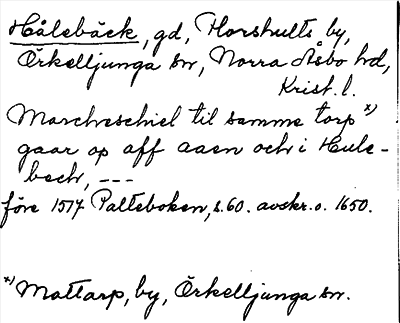 Hålebäck, gd, Horshults by,
Örkelljunga sn, Norra Åsbo hd,
Krist. l.
Marchschiel til samme torp x)
gaar op aff aaen och i Hule-
bech, ---
före 1517 Palteboken, s. 60. avskr. o. 1650.
x) Mattarp, by, Örkelljunga sn.